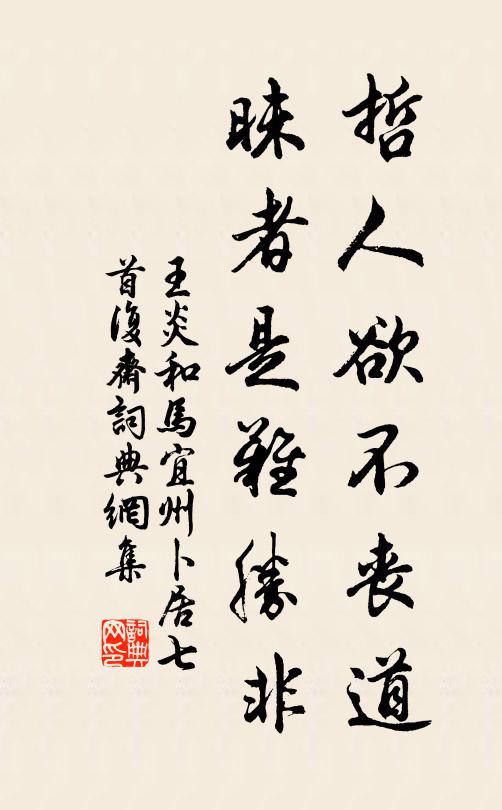 哲人欲不喪道
昧者是難勝非
王炎和馬宜州卜居七
首復齋詞典網集
詞典
网印